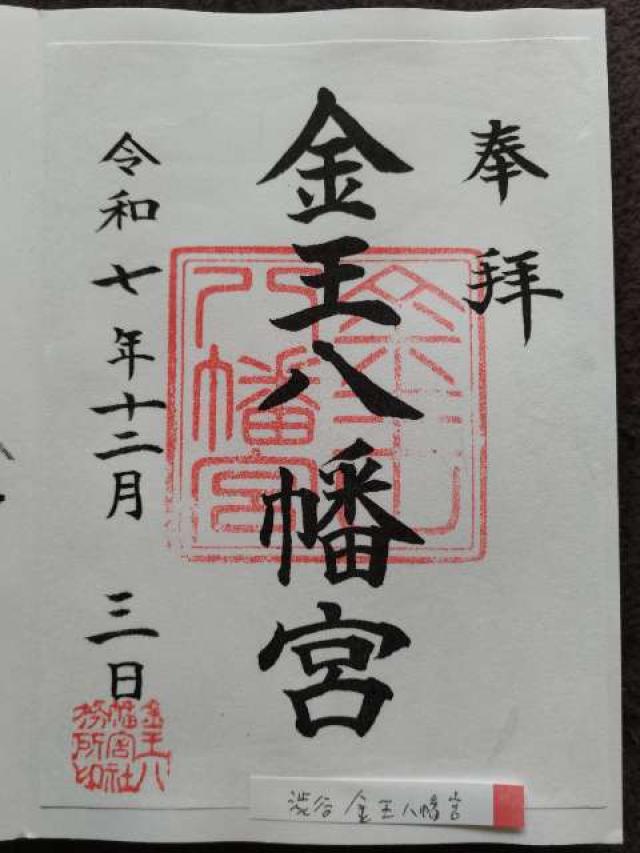 奉拝
金王八幡宮
金王八幡宮
令和七年十二月三日
金王八幡宮社務所印
渋谷 金王八幡宮